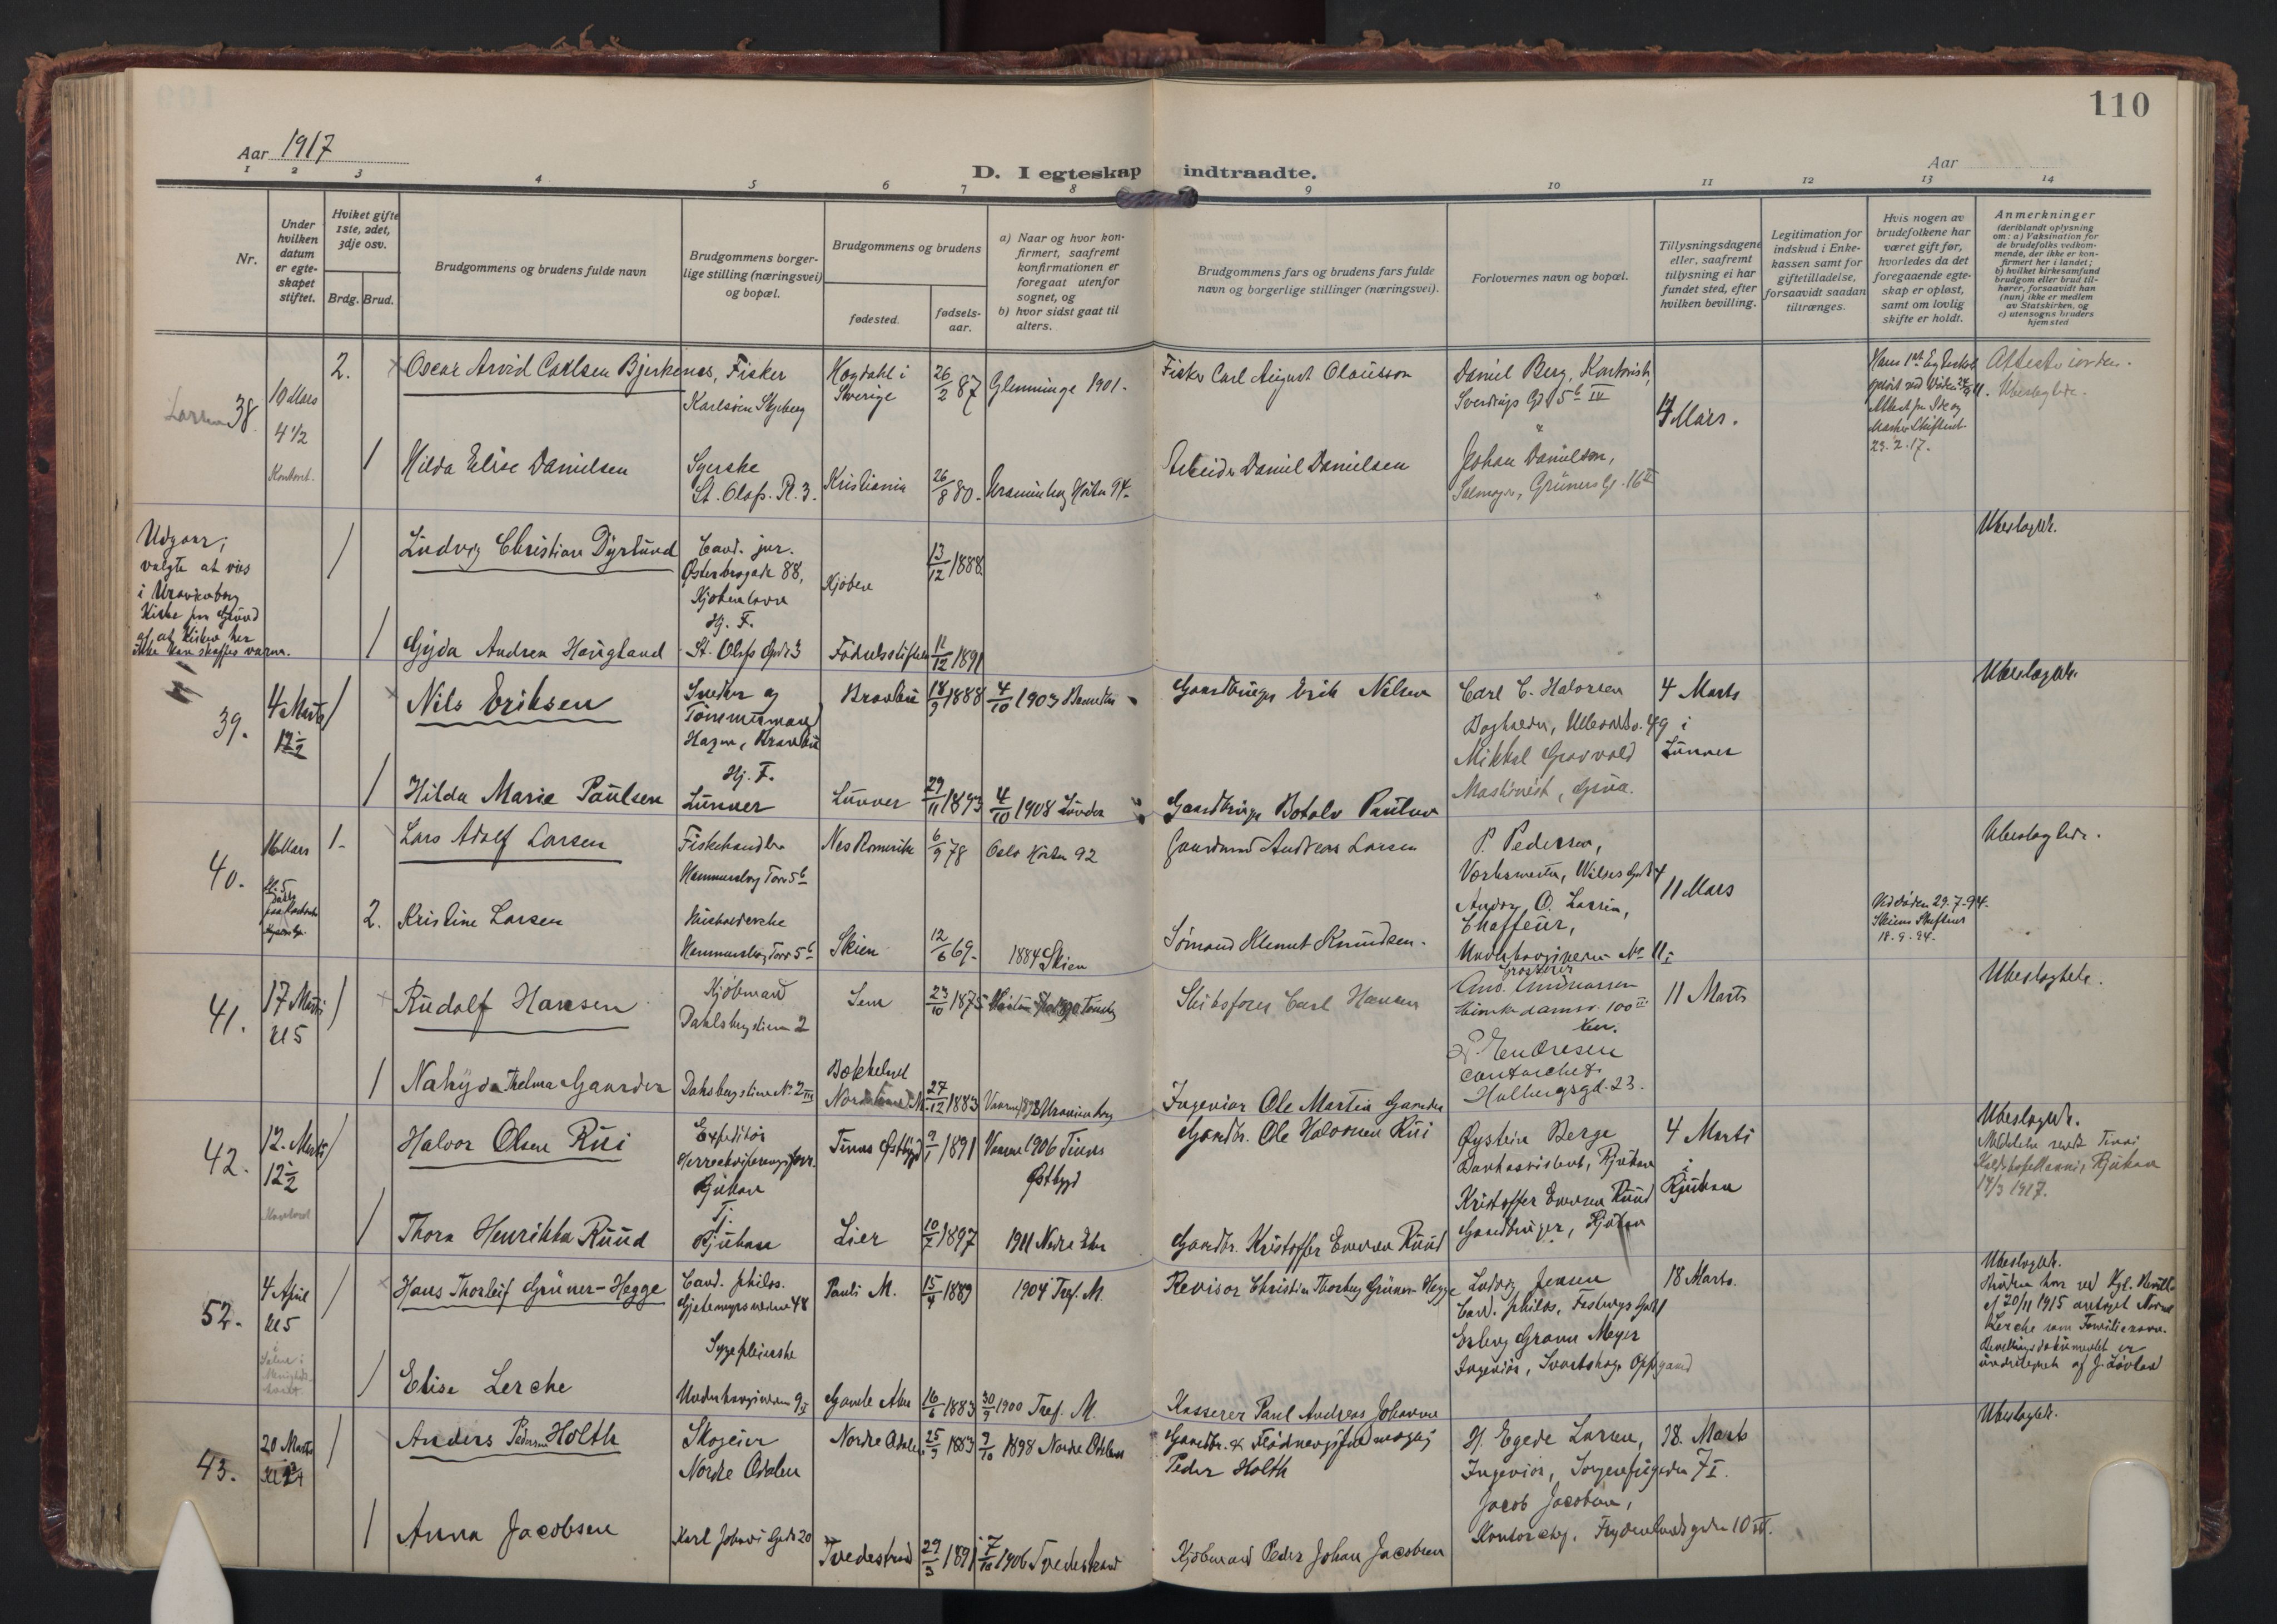 110
Aar 1917
Aar
D. I egteskap indtraadte.
1 2 3 4 5 6 7 8 9 10 11 12 13 14
Nr.
Under hvilken datum er egteskapet stiftet.
Hvilket gifte 1ste, 2det, 3dje osv.
Brdg. Brud.
Brudgommens og brudens fulde navn
Brudgommens borgerlige stilling (næringsvei) og bopæl.
Brudgommens og brudens
fødested.
fødselsaar.
a) Naar og hvor konfirmert, saafremt konfirmationen er foregaat utenfor sognet, og
b) hvor sidst gaat til alters.
Brudgommens fars og brudens fars fulde navn og borgerlige stillinger (næringsvei).
Forlovernes navn og bopæl.
Tillysningsdagene eller, saafremt tillysning ei har fundet sted, efter hvilken bevilling.
Legitimation for indskud i Enkekassen samt for giftetilladelse, forsaavidt saadan tiltrænges.
Hvis nogen av brudefolkene har været gift før, hvorledes da det foregaaende egteskap er opløst, samt om lovlig skifte er holdt.
Anmerkninger (deriblandt oplysning om: a) Vaksination for de brudefolks vedkommende, der ikke er konfirmert her i landet; b) hvilket kirkesamfund brudgom eller brud tilhører, forsaavidt han (hun) ikke er medlem av Statskirken, og c) utensogns bruders hjemsted
38.
10 Mars
4 1/2
Kontoret.
2.
Oscar Arvid Carlsen Bjerkenes, Fisker
Karlsøen Skjeberg
Hogdahl i Sverige
26/2 87
Glemminge 1901.
Fisker Carl August Olausson
Daniel Berg, Kontorist,
Sverdrups Gd 5 b IV
4 Mars.
Ubeslegtede.
23.2.17.
1
Hilda Elise Danielsen
Syerske
St. Olafs. Pl. 3.
Kristiania
26/8 80.
Uranienborg Høsten 94.
Arbeider Daniel Danielsen
Johan Danielsen,
Salmager, Grüners G. 16 II
Udgaar;
valgte at vies
i Uranienborg
Kirke paa Grund
af, at Kirken her
ikke kan skaffes varm.
1
Ludvig Christian Dyrlund
Cand. jur.
Østerbrogade 88,
Kjøbenhavn
Kjøbenh
13/12 1888
Ubeslegtede.
1
Gyda Andrea Haugland
Hj. F.
St. Olafs Gade 3
Fødselsstiftelsen
11/12 1891
39.
4 Marts
12 1/2
1
Nils Eriksen
Snedker og
Tømmermand
Hagen, Brandbu
Brandbu
18/9 1888
4/10 1903 Brandbu
Gaardbruger Erik Nilsen
Carl C. Halvorsen
Bogholder, Ullevoldsv. 49
Mikkel Grosvold
Maskinist, Grua.
4 Marts
i
Lunner
Ubeslegtede.
1
Hilda Marie Paulsen
Hj. F.
Lunner
Lunner
29/11 1893
4/10 1908 Lunder
Gaardbruger Botolv Paulsen
40.
16 Mars
1.
Lars Adolf Larsen
Fiskehandler
Hammersborg Torv 5 b
Nes Romerike
6/9 78
Oslo Høsten 92
Gaardmand Andreas Larsen
P. Pedersen,
Verksmester, Wilses Gade 4
11 Mars
Ubeslegtede.
2.
Kristine Larsen
Husholderske
Hammersborg Torv 5 b
Skien
12/6 69.
1884 Skien
Sømand Klemet Knudsen.
Andr. O. Larsen,
Chaffeur,
Underhaugsveien No 11
Ved døden 29.7.94.
Skiens Skifteret
18.9.94.
41.
17 Marts
Kl 5
1
Rudolf Hansen
Kjøbmand
Dahlsbergstien 2
Sem
23/10 1875
Skibsfører Carl Hansen
Grosserer
And. Andreassen
Munkedamsv. 100 III
11 Marts
Ubeslegtede.
1
Nahyda Thelma Gaarder
Dahlsbergstien No 2 III
Bækkelaget
Nordstrand M.
27/12 1883
Ingeniør Ole Martin Gaarder
P. Endresen
contorchef
Holbergsgd. 23.
42.
12. Marts
12 1/2
1
Halvor Olsen Rui
Expeditør
Rjukan
Tinns Østbygd
9/1 1891
Vaaren 1906 Tinns
Østbygd
Gaardbr. Ole Halvorsen Rui
Øystein Berge
Bankassistent, Rjukan
4 Marts
i
Rjukan
Ubeslegtede.
Rjukan
14/3 1917.
1
Thora Henrikka Ruud
T.
Rjukan
Lier
10/7 1897
1911 Nedre Eker
Gaardbr. Kristoffer Evensen Ruud
Kristoffer Evensen Ruud
Gaardbruger, Rjukan
52.
4 April
Kl 5
1
Hans Thorleif Grüner-Hegge
Cand. philos.
Gjetemyrsveien 48
Pauli M.
15/4 1889
1904 Tref. M.
Revisor Christian Thorberg Grüner Hegge
Ludvig Jensen
Cand. philos,
18 Marts.
Ubeslegtede.
Bruden har ved Kgl. Bevilln.
af 20/11 1915 antaget Navnet
Lerche som Familienavn.
Bevillingsdokumentet er
undertegnet af J. Løvland
1
Elise Lerche
Sygepleierske
Underhaugsveien 9 I
Gamle Aker
16/6 1883
30/9 1900 Tref. M.
Kasserer Paul Andreas Johansen
Esberg Gram Meyer
Ingeniør, Svartskog Oppegaard
43.
20 Marts
1
Anders Pedersen Holth
Skogeier
Nordre Odalen
Nordre Odalen
25/9 1883
2/10 1898 Nordre Odalen
Gaardbr. &
Peder Holth
H. Egede Larsen,
Ingeniør, Sorgenfrigaden 7 I.
18. Marts
Ubeslegtede.
1
Anna Jacobsen
Karl Johans Gade 20
Tvedestrand
29/3 1891
7/10 1906 Tvedestrand
Kjøbmand Peder Johan Jacobsen
Jacob Jacobsen,
Kontorchef, Frydenlundsgaden 10 III.